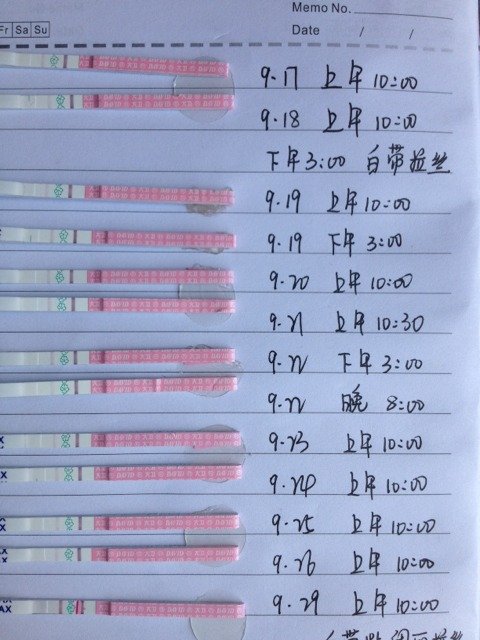 Memo No.
Fr Sa Su
Date / /
9.17 上午 10:00
9.18 上午 10:00
下午3:00 白带拉丝
9.19 上午 10:00
9.19 下午 3:00
9.20 上午 10:00
9.21 上午 10:30
9.22 下午 3:00
9.22 晚 8:00
9.23 上午 10:00
9.24 上午 10:00
9.25 上午 10:00
9.26 上午 10:00
9.29 上午 10:00